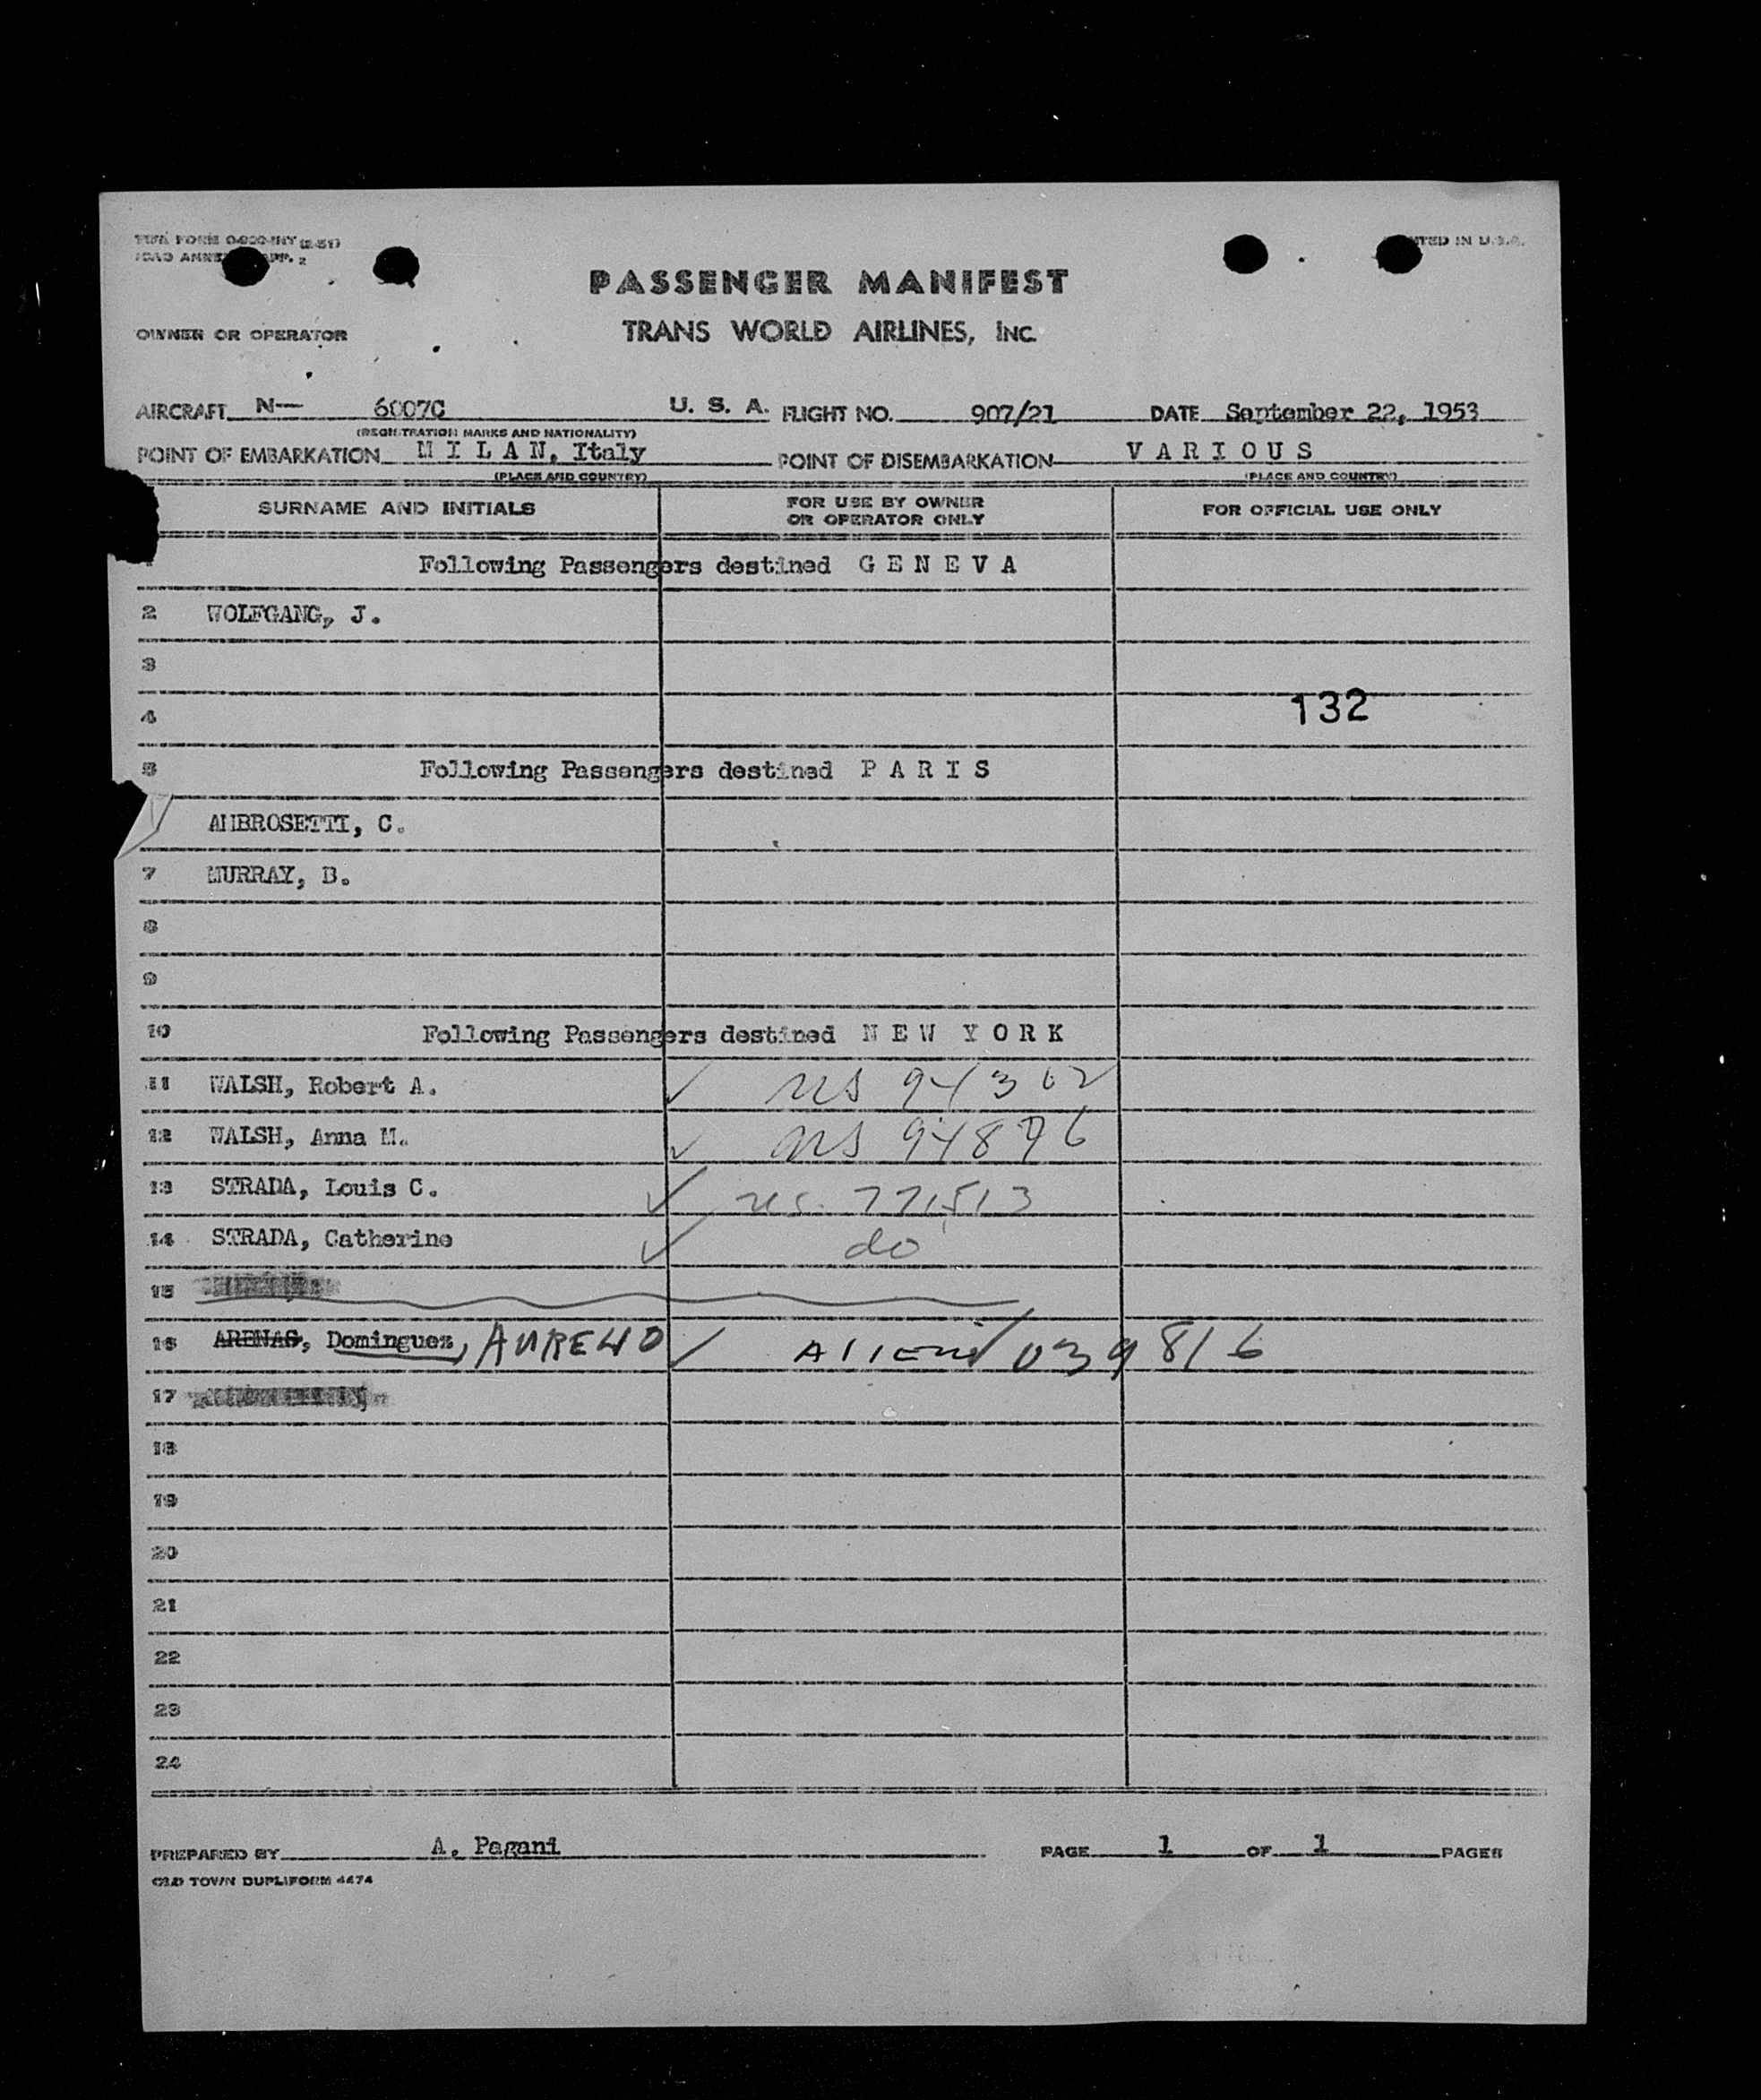 TWA FORM
ICAO ANNEX APP. 2
PRINTED IN U.S.A.
PASSENGER MANIFEST
OWNER OR OPERATOR TRANS WORLD AIRLINES, INC.
AIRCRAFT N— 6007C U. S. A. FLIGHT NO. 907/21 DATE September 22, 1953
(REGISTRATION MARKS AND NATIONALITY)
POINT OF EMBARKATION M I L A N, Italy POINT OF DISEMBARKATION V A R I O U S
(PLACE AND COUNTRY) (PLACE AND COUNTRY)
SURNAME AND INITIALS FOR USE BY OWNER OR OPERATOR ONLY FOR OFFICIAL USE ONLY
Following Passengers destined G E N E V A
2 WOLFGANG, J.
3
4 132
5 Following Passengers destined P A R I S
AMBROSETTI, C.
7 MURRAY, B.
8
9
10 Following Passengers destined N E W Y O R K
11 WALSH, Robert A. ✓ US 94302
12 WALSH, Anna M. ✓ US 94876
13 STRADA, Louis C. ✓ US. 771513
14 STRADA, Catherine ✓ do
15
16 ARENAS, Dominguez, AURELIO ✓ Alien 039816
17
18
19
20
21
22
23
24
PREPARED BY A. Pagani PAGE 1 OF 1 PAGES
OLD TOWN DUPLIFORM 4474